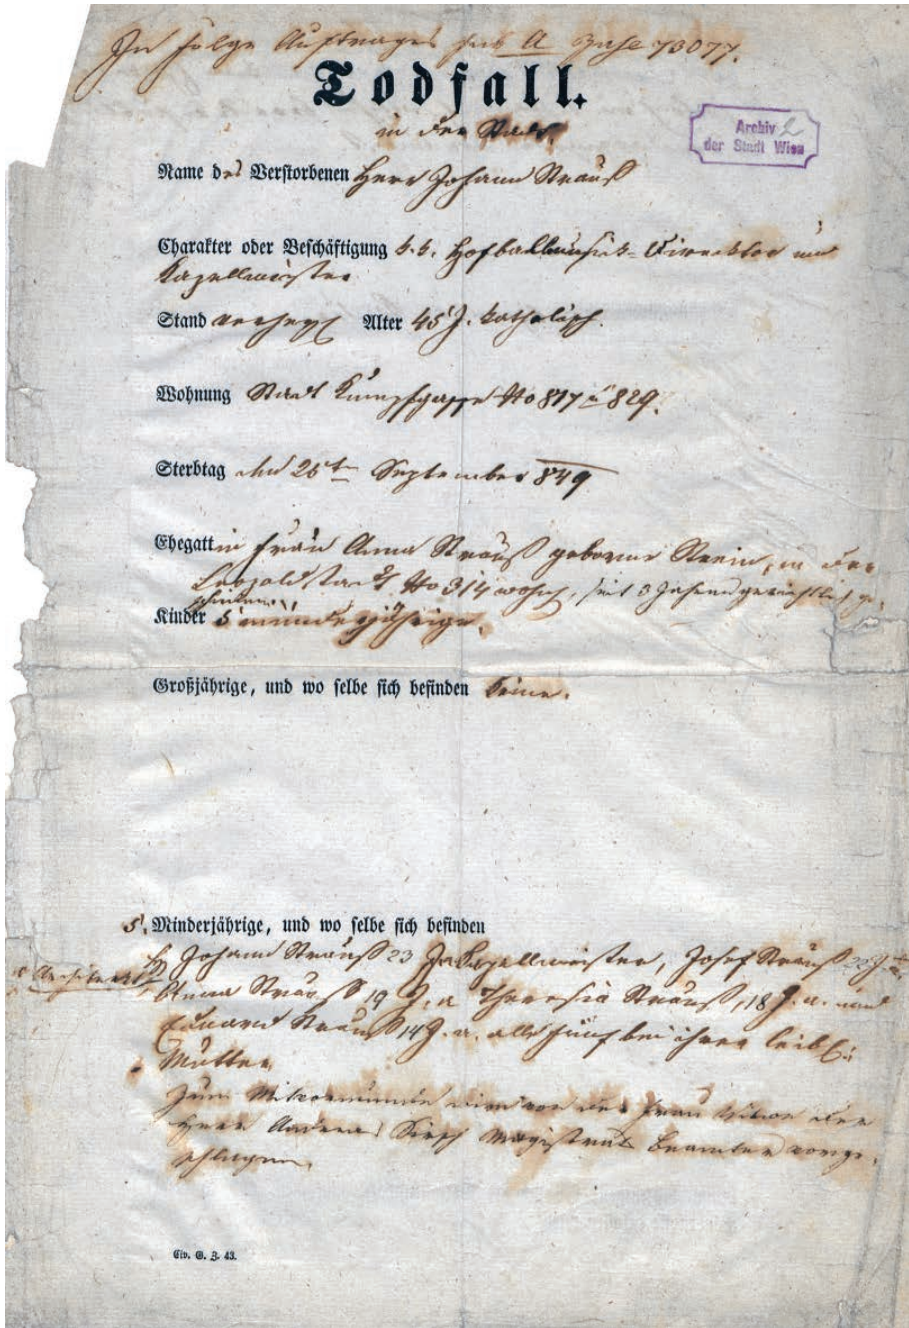 In Folge Auftrages sub A Zahl 73077.
Todfall.
in der Stadt
Archiv 2
der Stadt Wien
Name des Verstorbenen Herr Johann Strauß
Charakter oder Beschäftigung k.k. Hofballmusik-Direktor und
Kapellmeister
Stand verehel Alter 45 J. katholisch.
Wohnung Stadt Kumpfgasse No 817 u 829.
Sterbtag den 25t September 849
Ehegattin Frau Anna Strauß geborne Streim, in der
Leopoldstadt No 314 wohnh, seit 3 Jahren gerichtlich ge-
schieden
Kinder 5 minderjährige.
Großjährige, und wo selbe sich befinden keine.
5 Minderjährige, und wo selbe sich befinden
H Johann Strauß 23 J. Kapellmeister, Josef Strauß 22 J.
Anna Strauß 19 J. a Theresia Strauß, 18 J. a. und
Eduard Strauß 14 J. a. alle fünf bei ihrer leibl:
Mutter
Zum Mitvormunde wird von der Frau Witwe der
Herr Magistrats Beamter vorge-
schlagen.
Civ. G. Z. 43.